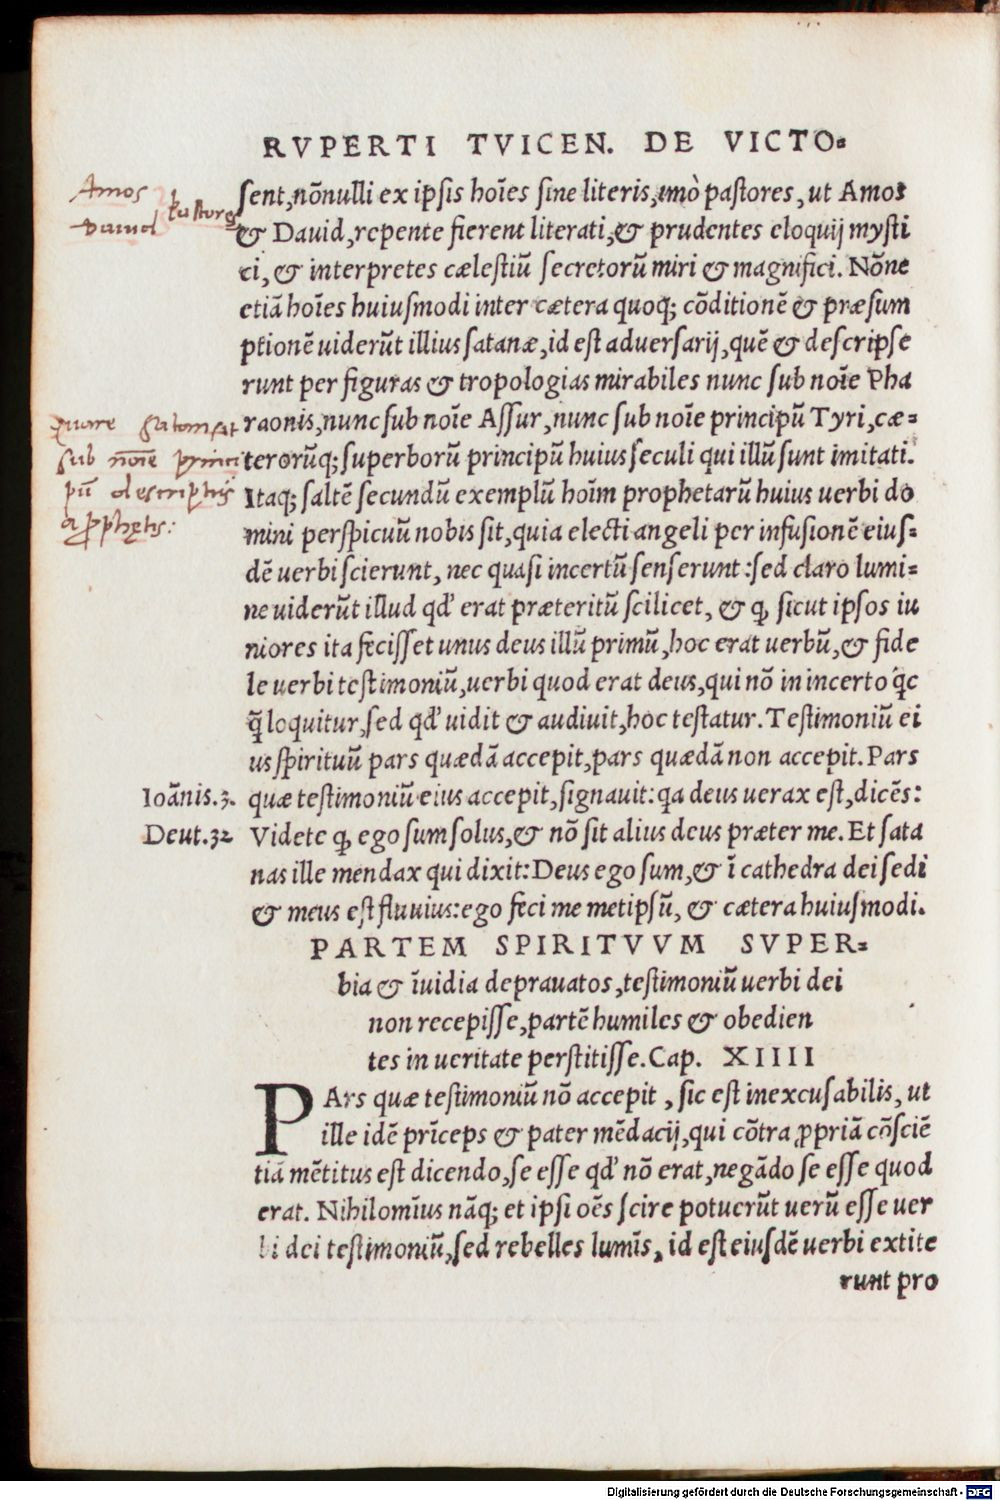 RVPERTI TVICEN. DE VICTO=
Amos
Dauid
sent, nõnulli ex ipsis hoĩes sine literis, imò pastores, ut Amos
& Dauid, repente fierent literati, & prudentes eloquij mysti
ci, & interpretes cælestiũ secretorũ miri & magnifici. Nõne
etiã hoĩes huiusmodi inter cætera quoq; cõditionẽ & præsum
ptionẽ uiderũt illius satanæ, id est aduersarij, quẽ & descripse
runt per figuras & tropologias mirabiles nunc sub noĩe Pha
raonis, nunc sub noĩe Assur, nunc sub noĩe principũ Tyri, cæ=
terorũq; superborũ principũ huius seculi qui illũ sunt imitati.
Itaq; saltẽ secundũ exemplũ hoĩm prophetarũ huius uerbi do
mini perspicuũ nobis sit, quia electi angeli per infusionẽ eius=
dẽ uerbi scierunt, nec quasi incertũ senserunt: sed claro lumi=
ne uiderũt illud qđ erat præteritũ scilicet, & ꝙ sicut ipsos iu
niores ita fecisset unus deus illũ primũ, hoc erat uerbũ, & fide
le uerbi testimoniũ, uerbi quod erat deus, qui nõ in incerto q́c
q̃ loquitur, sed qđ uidit & audiuit, hoc testatur. Testimoniũ ei
us spirituũ pars quædã accepit, pars quædã non accepit. Pars
quare
sub noĩe princi
pũ descriptus
a ꝓphetis:
Ioãnis.3.
quæ testimoniũ eius accepit, signauit: qa deus uerax est, dicẽs:
Deut.32
Videte ꝙ ego sum solus, & nõ sit alius deus præter me. Et sata
nas ille mendax qui dixit: Deus ego sum, & ĩ cathedra dei sedi
& meus est fluuius: ego feci me metipsũ, & cætera huiusmodi.
PARTEM SPIRITVVM SVPER=
bia & ĩuidia deprauatos, testimoniũ uerbi dei
non recepisse, partẽ humiles & obedien
tes in ueritate perstitisse. Cap. XIIII
PArs quæ testimoniũ nõ accepit, sic est inexcusabilis, ut
ille idẽ prĩceps & pater mẽdacij, qui cõtra ꝓpriã cõsciẽ
tiã mẽtitus est dicendo, se esse qđ nõ erat, negãdo se esse quod
erat. Nihilomĩus nãq; et ipsi oẽs scire potuerũt uerũ esse uer
bi dei testimoniũ, sed rebelles lumĩs, id est eiusdẽ uerbi extite
runt pro
Digitalisierung gefördert durch die Deutsche Forschungsgemeinschaft - DFG